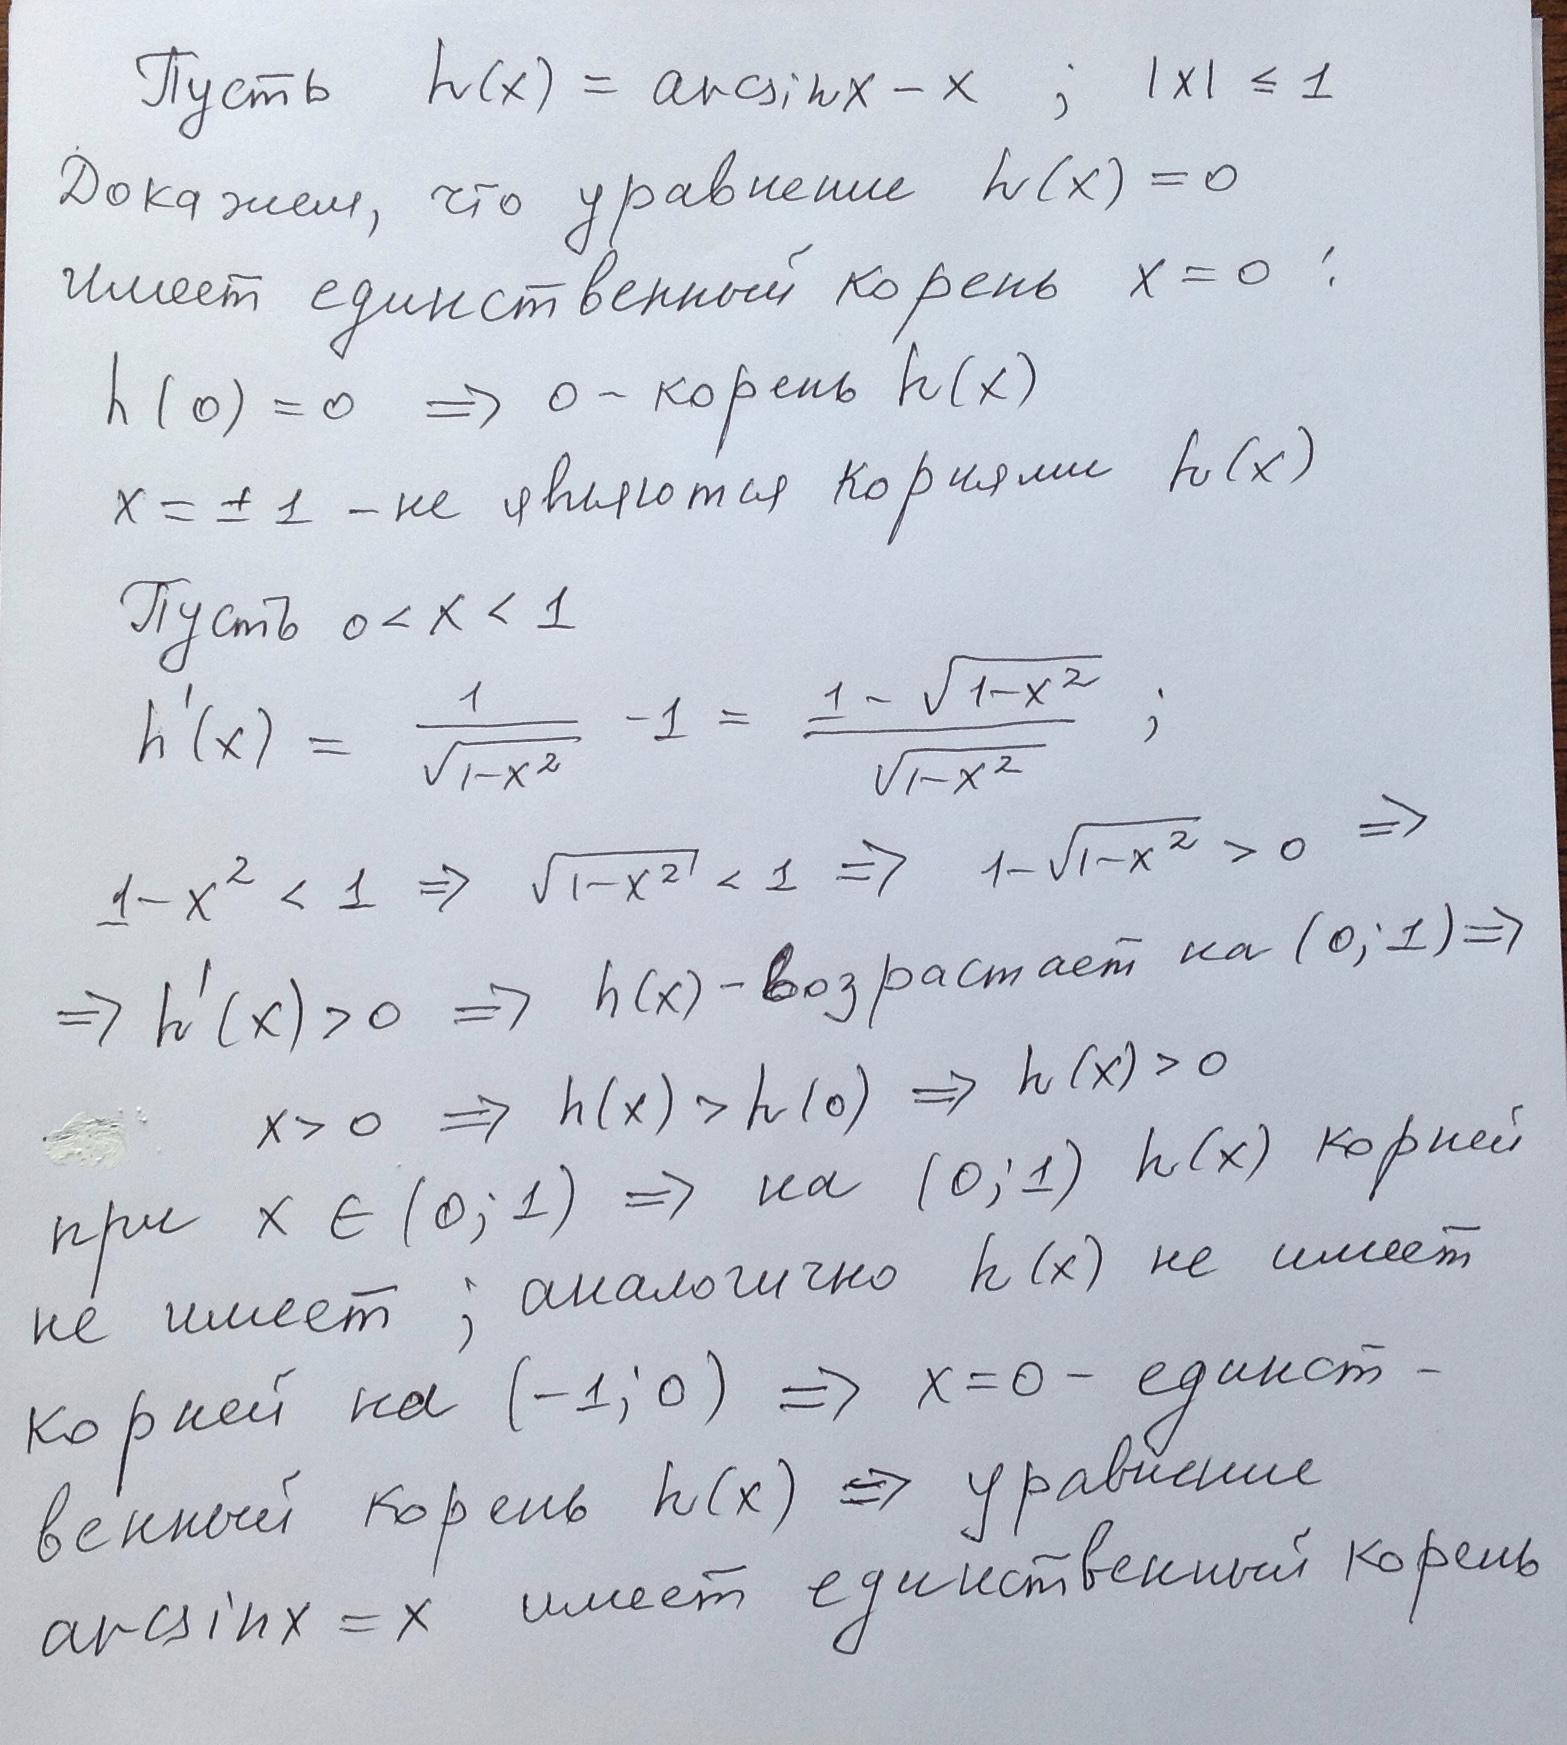 Пусть h(x) = arcsinx - x ; |x| ≤ 1
Докажем, что уравнение h(x) = 0
имеет единственный корень x = 0 :
h(0) = 0 => 0 - корень h(x)
x = ± 1 - не являются корнями h(x)
Пусть 0 < x < 1
h'(x) = 1/√(1-x²) - 1 = (1 - √(1-x²))/√(1-x²) ;
1 - x² < 1 => √(1-x²) < 1 => 1 - √(1-x²) > 0 =>
=> h'(x) > 0 => h(x) - возрастает на (0; 1) =>
x > 0 => h(x) > h(0) => h(x) > 0
при x ∈ (0; 1) => на (0; 1) h(x) корней
не имеет ; аналогично h(x) не имеет
корней на (-1; 0) => x = 0 - единст -
венный корень h(x) => уравнение
arcsinx = x имеет единственный корень